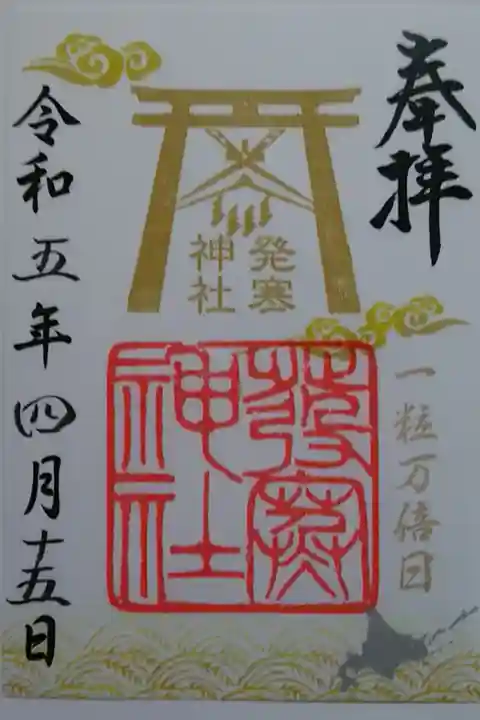 奉拝
発寒
神社
一粒万倍日
發寒
神社
令和五年四月十五日